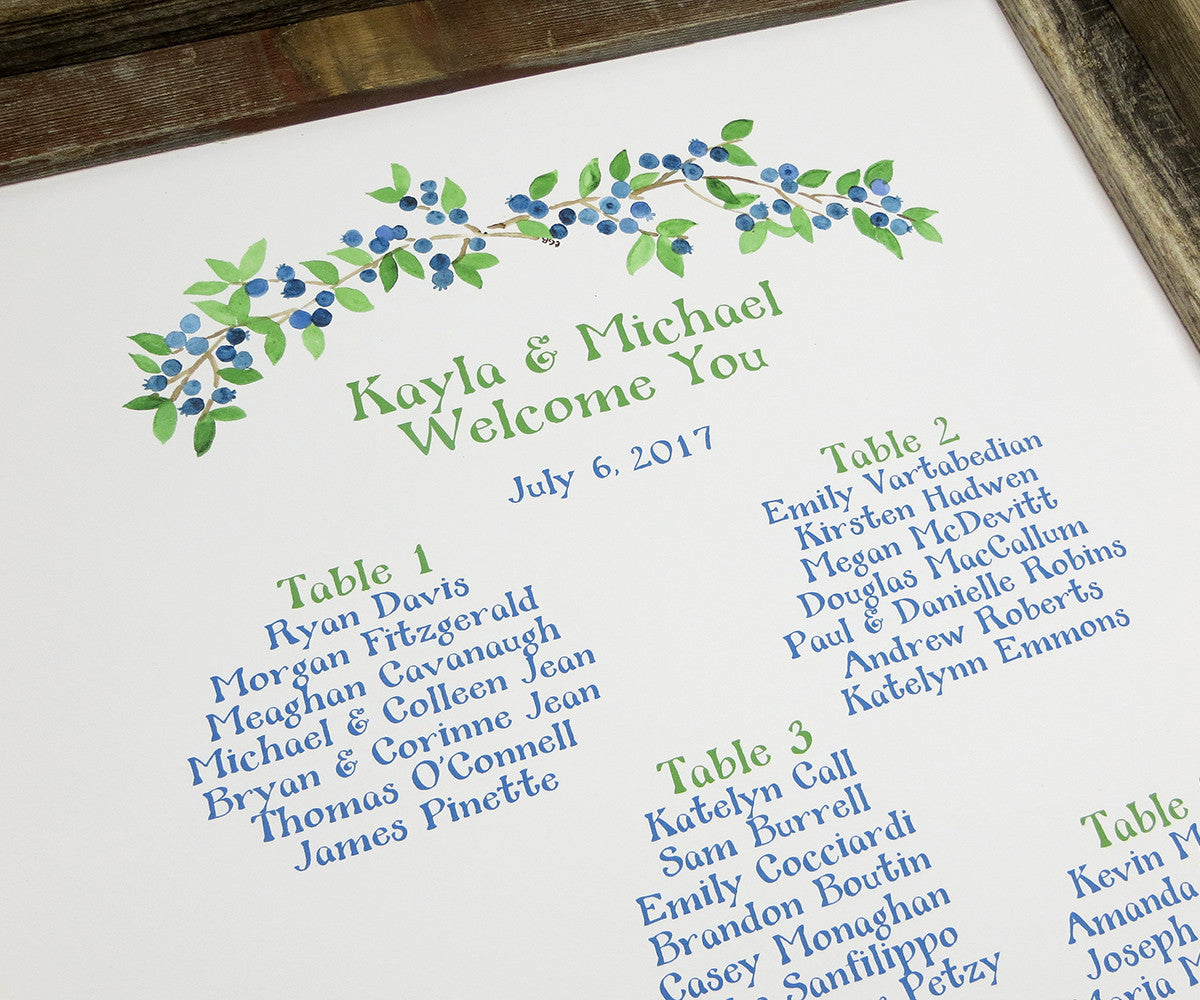 Kayla & Michael
Welcome You
July 6, 2017
Table 1
Ryan Davis
Morgan Fitzgerald
Meaghan Cavanaugh
Michael & Colleen Jean
Bryan & Corinne Jean
Thomas O'Connell
James Pinette
Table 2
Emily Vartabedian
Kirsten Hadwen
Megan McDevitt
Douglas MacCallum
Paul & Danielle Robins
Andrew Roberts
Katelynn Emmons
Table 3
Katelyn Call
Sam Burrell
Emily Cocciardi
Brandon Boutin
Casey Monaghan
Sanfilippo
Petzy
Table
Kevin M
Amanda
Joseph